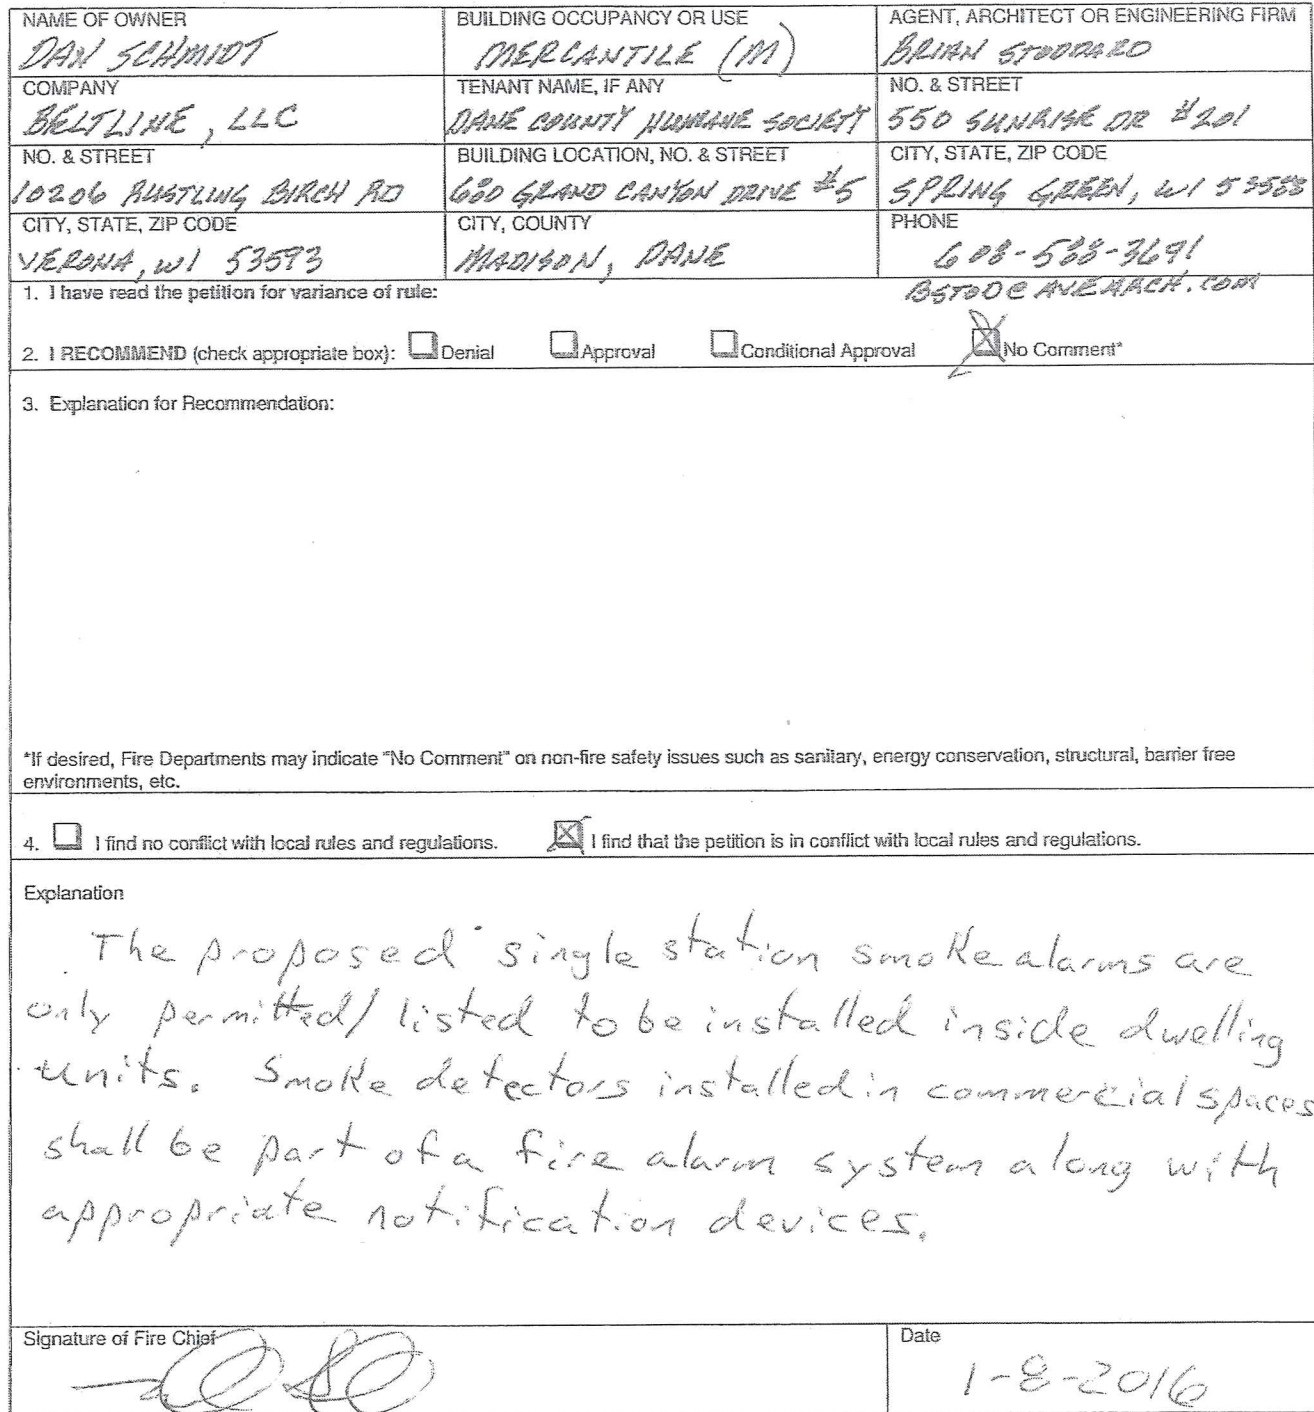 NAME OF OWNER
DAN SCHMIDT
BUILDING OCCUPANCY OR USE
MERCANTILE (M)
AGENT, ARCHITECT OR ENGINEERING FIRM
BRIAN STODDARD
COMPANY
BELTLINE, LLC
TENANT NAME, IF ANY
DANE COUNTY HUMANE SOCIETY
NO. & STREET
550 SUNRISE DR #201
NO. & STREET
10206 RUSTLING BIRCH RD
BUILDING LOCATION, NO. & STREET
GRAND CANYON DRIVE #5
CITY, STATE, ZIP CODE
SPRING GREEN, WI 53588
CITY, STATE, ZIP CODE
VERONA, WI 53593
CITY, COUNTY
MADISON, DANE
PHONE
608-588-3691
BSTOD@AVEARCH.COM
1. I have read the petition for variance of rule:
2. I RECOMMEND (check appropriate box): Denial Approval Conditional Approval No Comment*
3. Explanation for Recommendation:
*If desired, Fire Departments may indicate "No Comment" on non-fire safety issues such as sanitary, energy conservation, structural, barrier free
environments, etc.
4. I find no conflict with local rules and regulations. I find that the petition is in conflict with local rules and regulations.
Explanation
The proposed single station smoke alarms are
only permitted/listed to be installed inside dwelling
units. Smoke detectors installed in commercial spaces
shall be part of a fire alarm system along with
appropriate notification devices.
Signature of Fire Chief
Date
1-8-2016